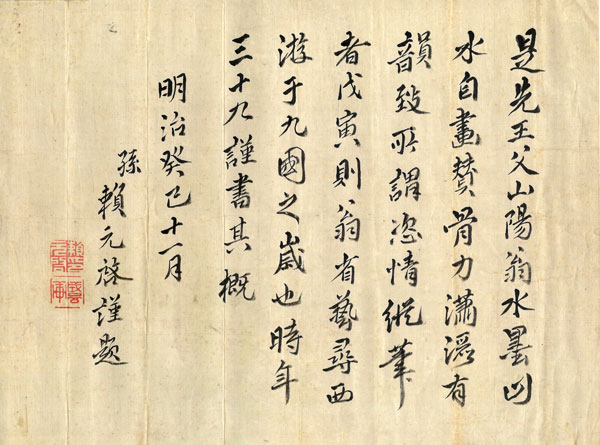 是先王父山陽翁水墨山
水自畫賛骨力瀟洒有
韻致所謂恣情縱筆
者戊寅則翁省藝尋西
游于九國之歲也時年
三十九謹書其概
明治癸巳十一月
孫 賴元啓謹題